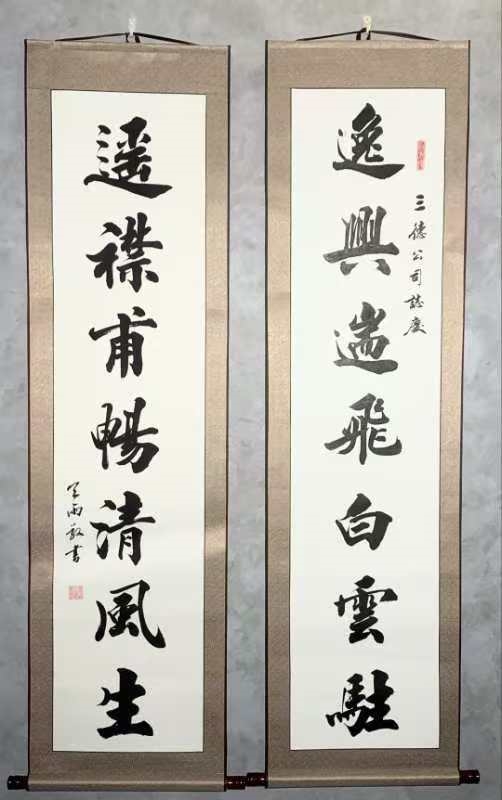 三德公司誌慶
逸興遄飛白雲駐
遥襟甫暢清風生
雨敬書